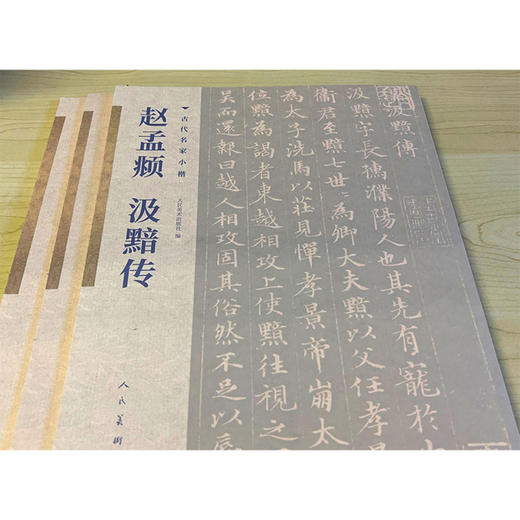 古代名家小楷
赵孟𫖯 汲黯传
人民美术出版社 编
人民美術
汲黯傳
汲黯字長孺濮陽人也其先有寵於
衛君至黯七世〻為卿大夫黯以父任孝景
為太子洗馬以莊見憚孝景帝崩太
位黯為謁者東越相攻上使黯往視之
吳而還報曰越人相攻固其俗然不足以辱